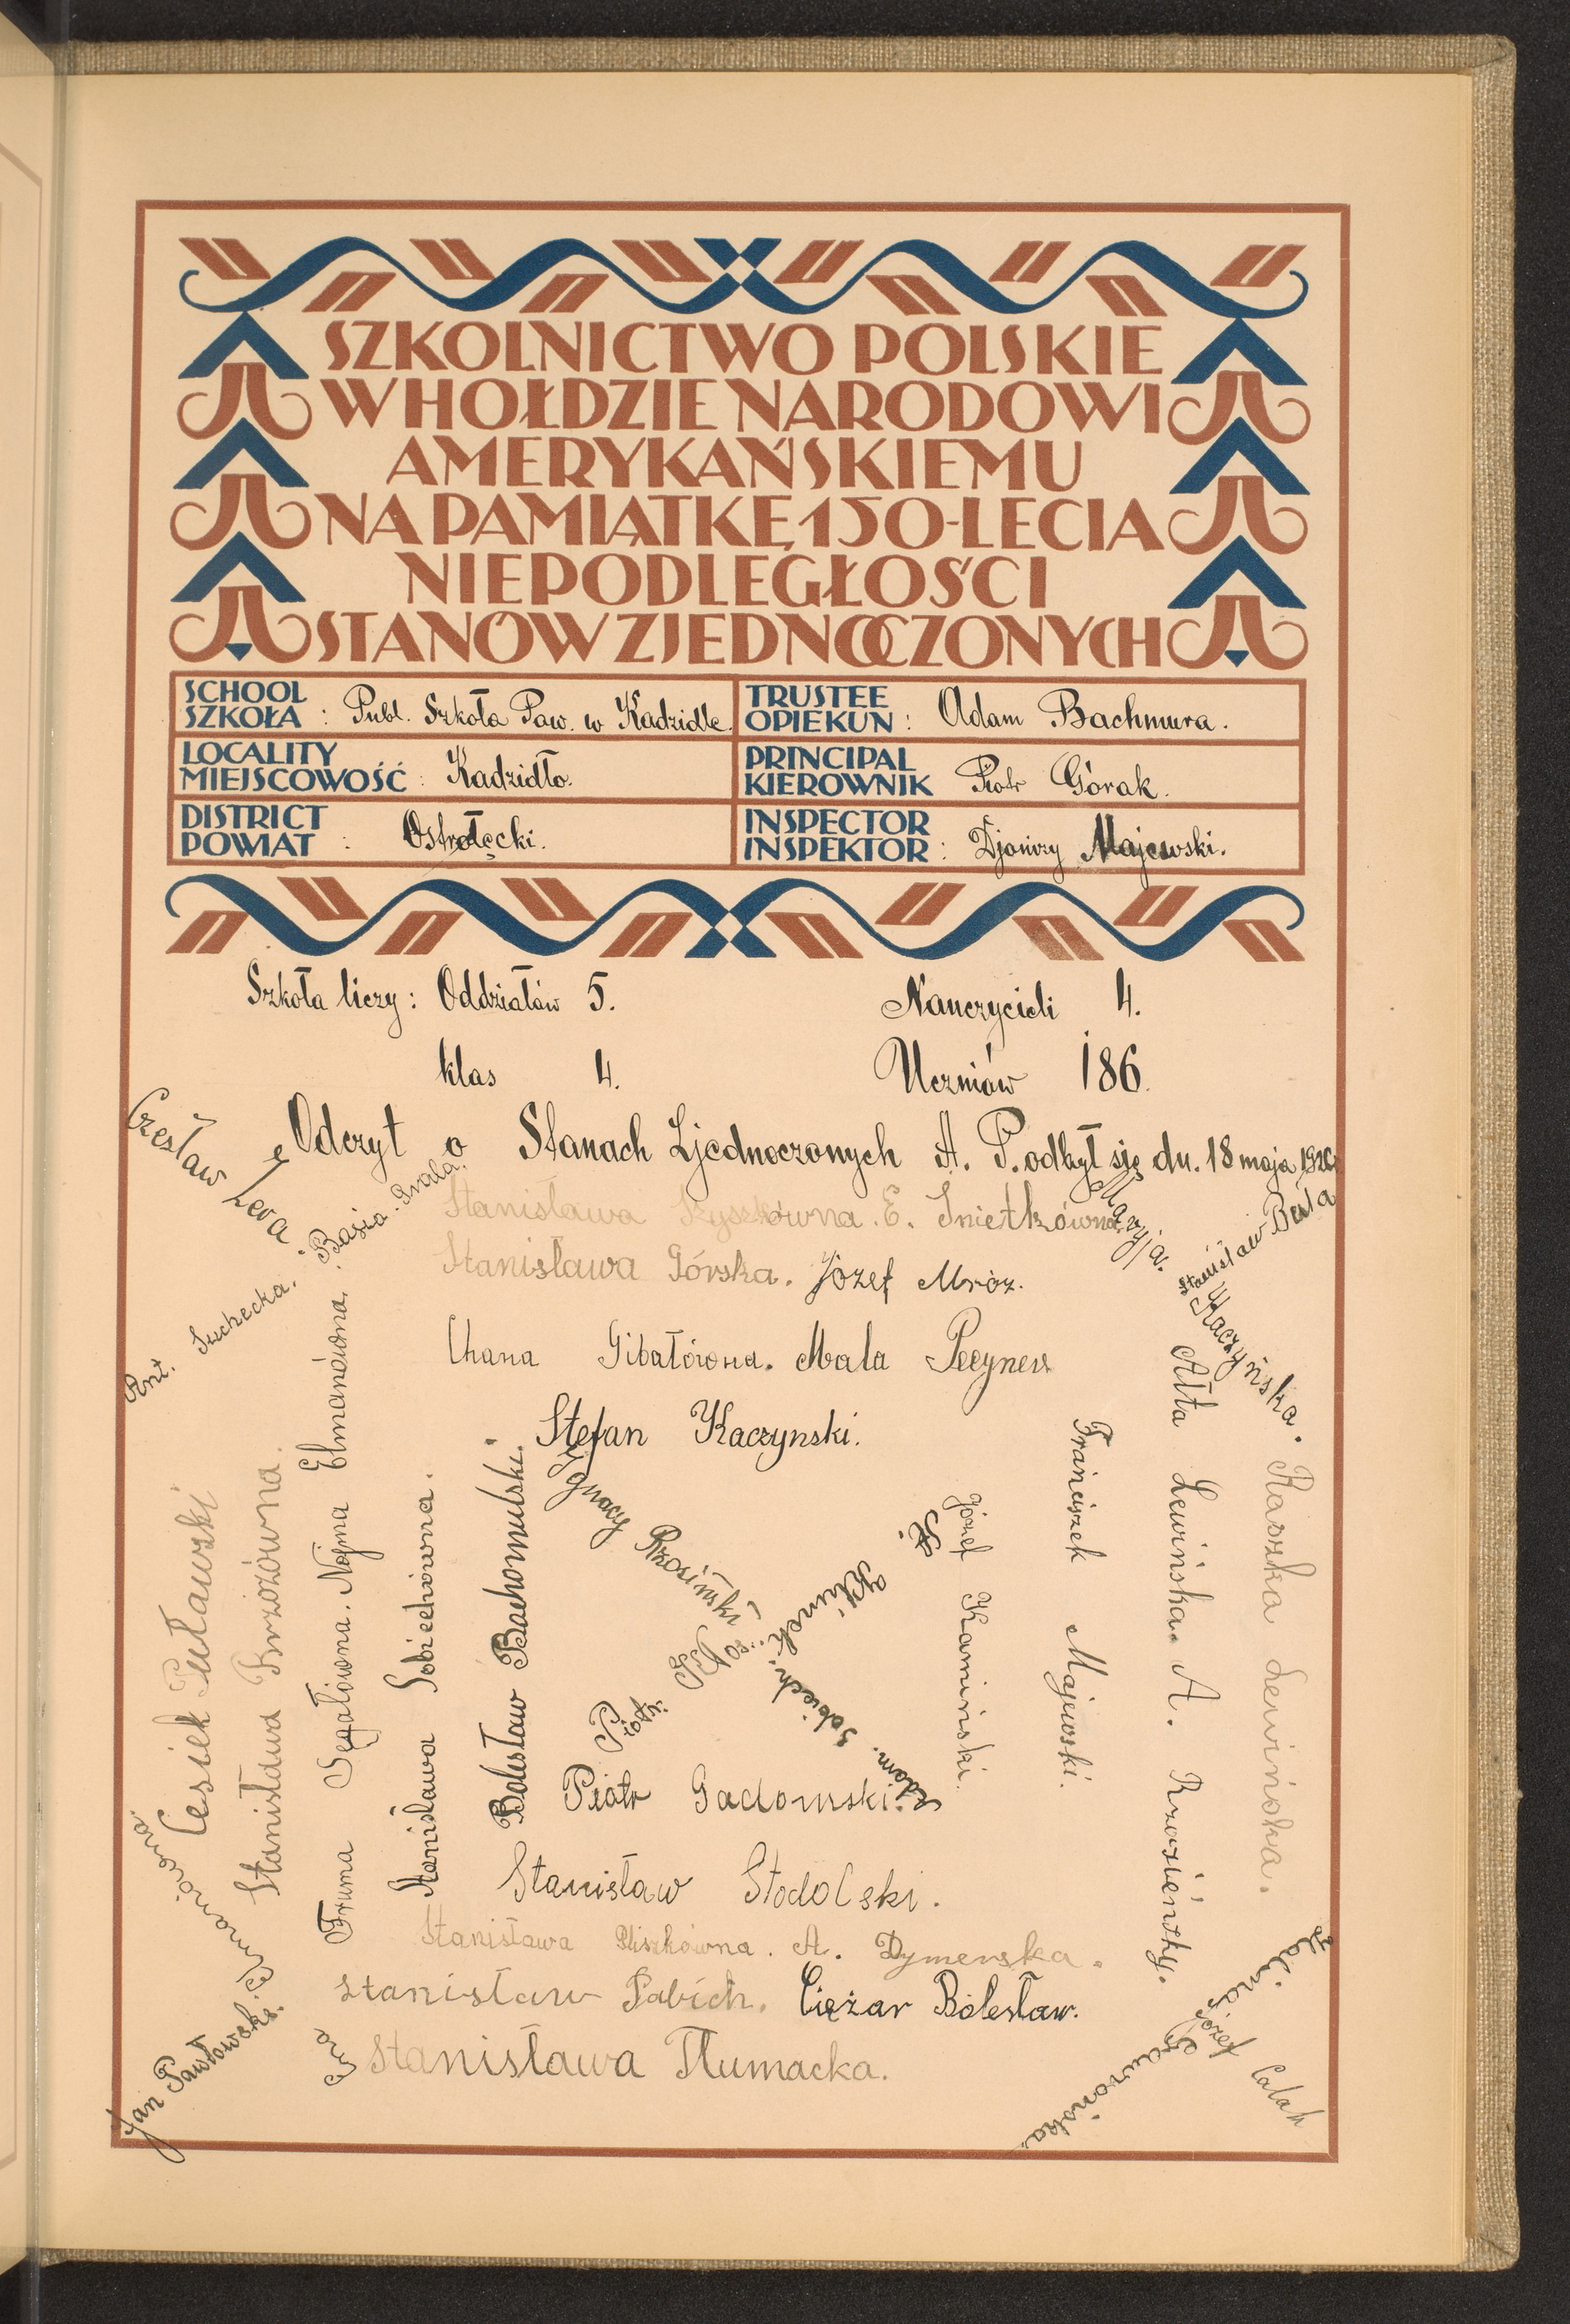 SZKOLNICTWO POLSKIE
W HOŁDZIE NARODOWI
AMERYKAŃSKIEMU
NA PAMIĄTKĘ 150-LECIA
NIEPODLEGŁOŚCI
STANÓW ZJEDNOCZONYCH
SCHOOL
SZKOŁA : Publ. Szkoła Pow. w Kadzidle
TRUSTEE
OPIEKUN : Adam Bachmura.
LOCALITY
MIEJSCOWOŚĆ : Kadzidło.
PRINCIPAL
KIEROWNIK Piotr Górak.
DISTRICT
POWIAT : Ostrołęcki.
INSPECTOR
INSPEKTOR : Majewski.
Szkoła liczy : Oddziałów 5. Nauczycieli 4.
klas 4. Uczniów 186.
Odczyt o Stanach Zjednoczonych A. P. odbył się dn. 18 maja 1926
Czesław Zera
Ant. Suchecka. Basia. Grala
Stanisława Szyszkówna. E. Śnietkówna
Maryja. Kaczyńska.
Stanisław Beśta
Stanisława Górska. Józef Mróz.
Chana Gibałówna. Mala
Stefan Kaczynski.
Cesiek Puławski
Stanisława Brzozówna.
Fruma Segałówna. Nojma Elmanówna.
Stanisława Sobiechówna.
Bolesław Bachomulski.
Ignacy Rzosiński
Piotr.
St. Klimek.
Adam. Sobiech.
Józef Kamiński.
Franciszek Majewski.
Ałta Lewińska. A.
Raszka Lewińska.
Piotr Gadomski.
Stanisław Stodolski.
Stanisława Pliszkówna. A. Dymerska.
Stanisław Pabich. Ciężar Bolesław.
Stanisława Tłumacka.
Elmanówna
Jan Pawłowski.
Halina Gawrońska.
Józef Calak